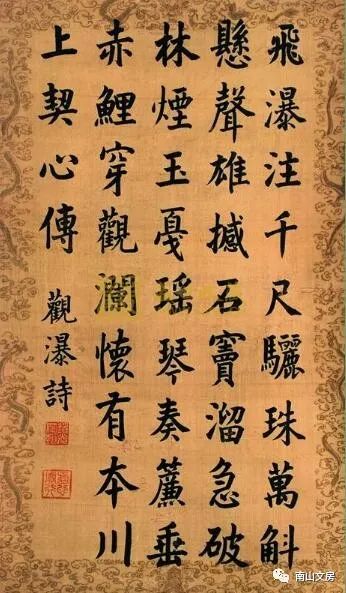 飛瀑注千尺驪珠萬斛
懸聲雄撼石竇溜急破
林煙玉戛瑤琴奏簾垂
赤鯉穿觀瀾懷有本川
上契心傳 觀瀑詩
南山文房